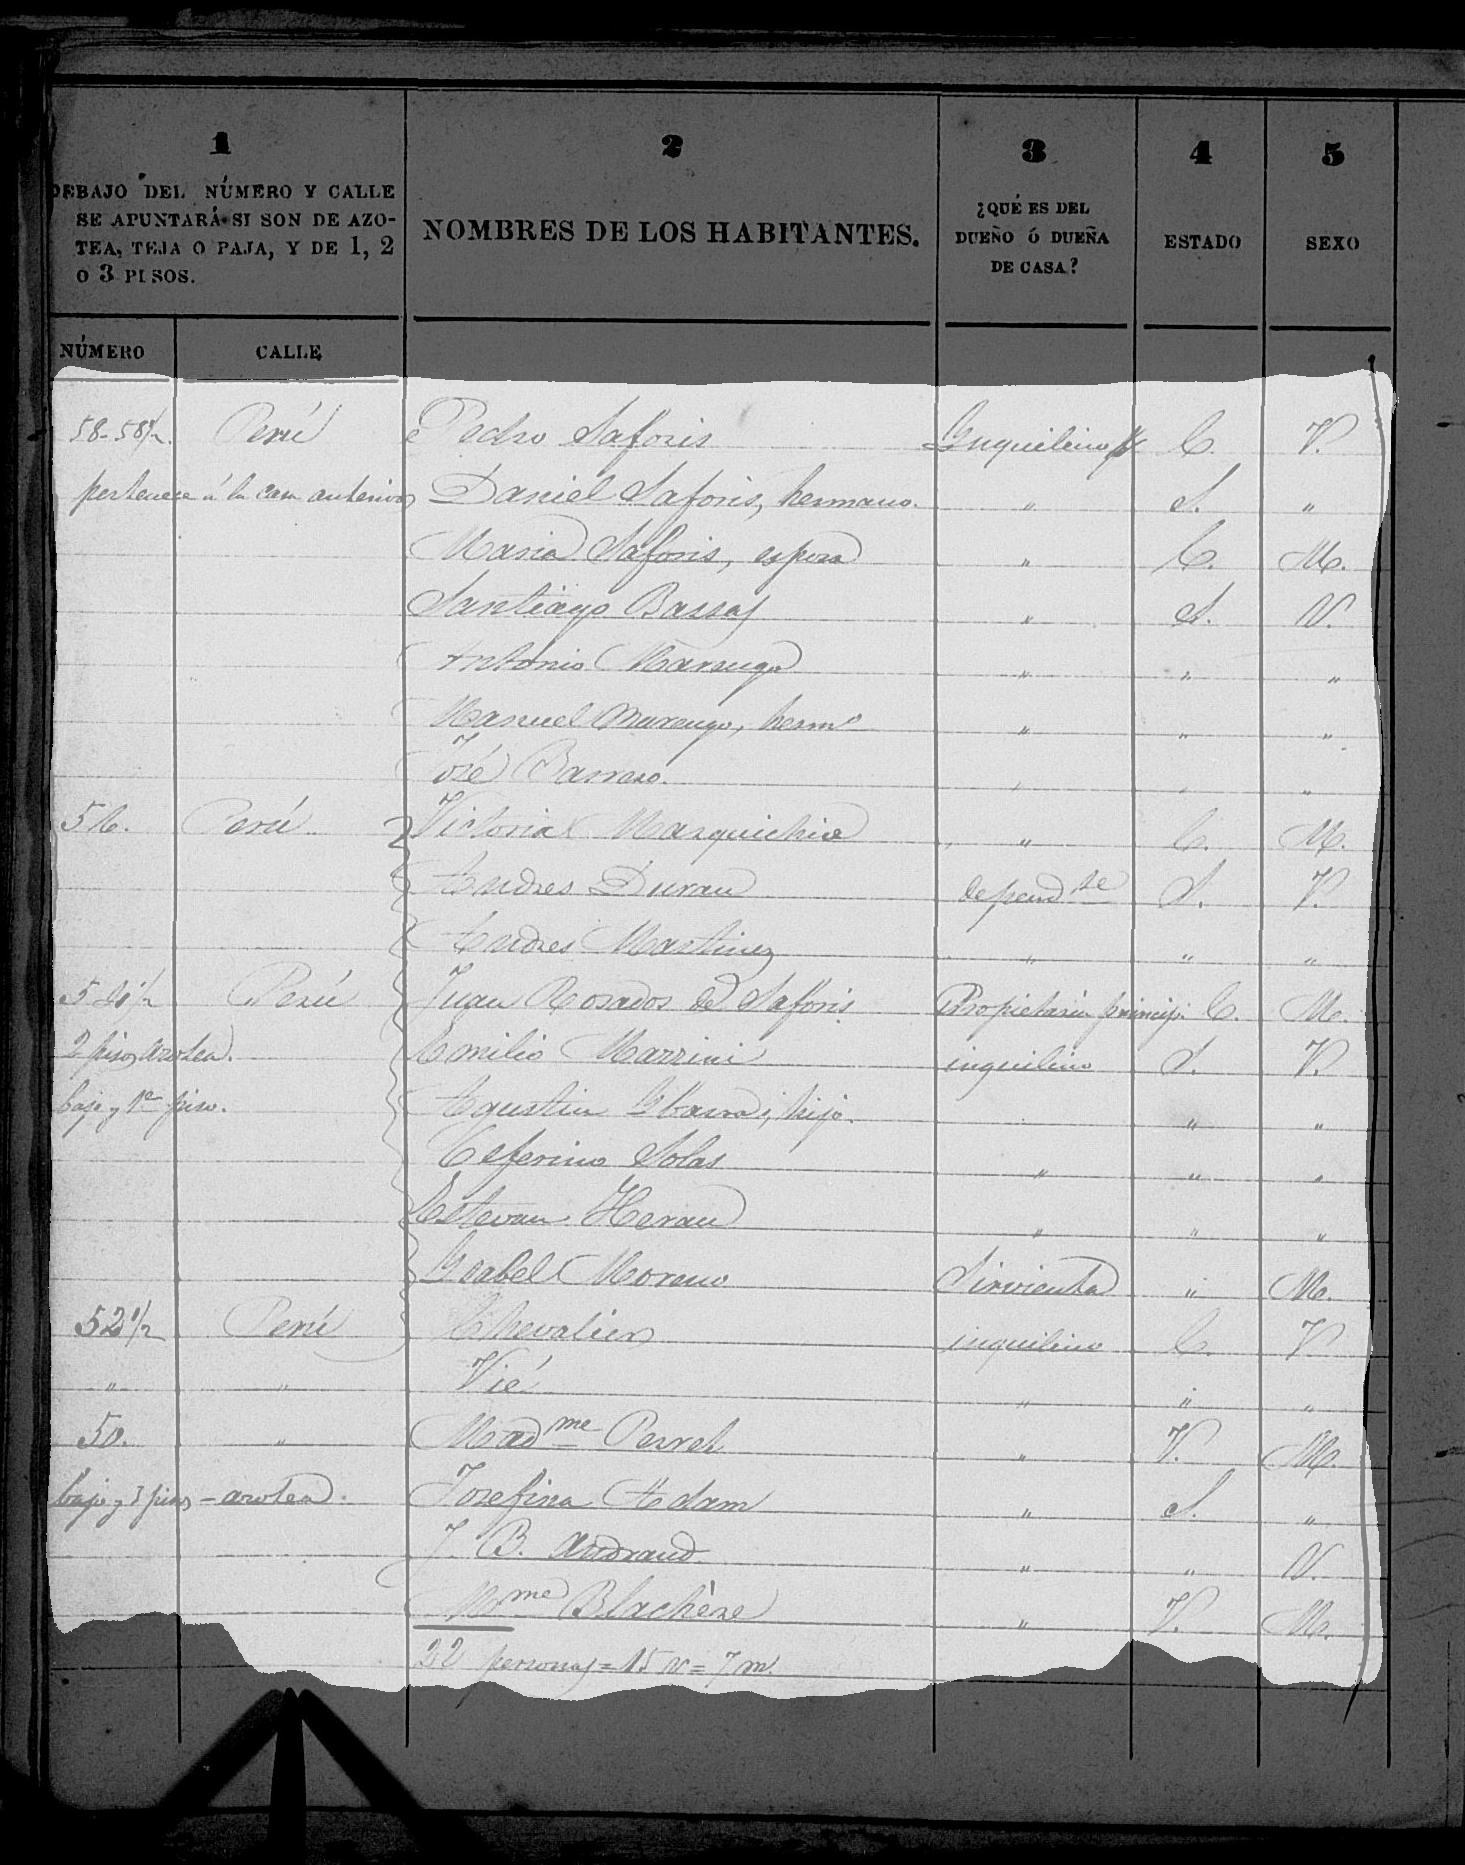 1
DEBAJO DEL NÚMERO Y CALLE
SE APUNTARÁ SI SON DE AZO-
TEA, TEJA O PAJA, Y DE 1, 2
O 3 PISOS.
2
NOMBRES DE LOS HABITANTES.
3
¿QUÉ ES DEL
DUEÑO Ó DUEÑA
DE CASA?
4
ESTADO
5
SEXO
NÚMERO CALLE
58-58½ Perú Pedro Saforis Inquilino C. V.
pertenece á la casa anterior Daniel Saforis, hermano. " S. "
Maria Saforis, esposa " C. M.
Santiago Bassas " S. V.
Antonio Marengo " " "
Manuel Marengo, hermº " " "
José Barrero. " " "
56. Perú Victoria Marquichie " C. M.
Andres Duran dependte S. V.
Andres Martinez " " "
54½ Perú Juan Rosados de Saforis Propietaria princip. C. M.
2 pisos azotea. Emilio Mazzini inquilino S. V.
bajo y 1er piso. Agustin Ybarra, hijo. " "
Ceferino Solas " " "
Estevan Heran " " "
Ysabel Moreno Sirvienta " M.
52½ Perú Chevalier inquilino C. V.
" " Vié " " "
50. " Madme Perret " V. M.
bajo y 3 pisos - azotea. Josefina Adam " S. "
J. B. Andraud " " V.
Mme Blachère " V. M.
22 personas = 15 v = 7 m.